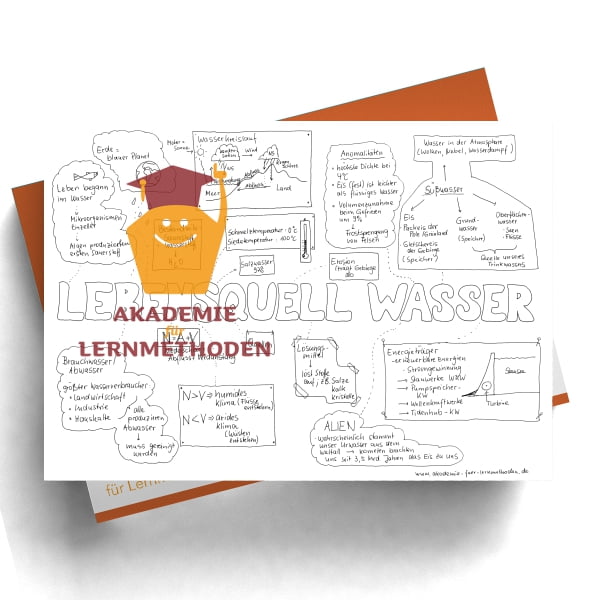 Erde =
blauer Planet
Leben begann
im Wasser
Mikroorganismen
Einzeller
Algen produzieren
ersten Sauerstoff
Wasserkreislauf
Motor =
Sonne
Wind
NS
Meer
Land
Schmelztemperatur : 0°C
Siedetemperatur : 100°C
H₂O
Salzwasser
Anomalitäten
• höchste Dichte bei
4°C
• Eis (fest) ist leichter
als flüssiges Wasser
• Volumenzunahme
beim Gefrieren
um 9%
→ Frostsprengung
von Felsen
Erosion
(trägt Gebirge
ab)
Wasser in der Atmosphäre
(Wolken, Nebel, Wasserdampf)
Süßwasser
Eis
Packeis der
Pole/Grönland
Gletschereis
der Gebirge
(Speicher)
Grund-
wasser
(Speicher)
Oberflächen-
wasser
- Seen
- Flüsse
Quelle unseres
Trinkwassers
LEBENSQUELL WASSER
AKADEMIE
für
LERNMETHODEN
N = A + V
Brauchwasser/
Abwasser
größter Wasserverbraucher
• Landwirtschaft
• Industrie
• Haushalte
alle
produzieren
Abwasser
muss gereinigt
werden
N > V ⇒ humides
Klima (Flüsse
entstehen)
N < V ⇒ arides
Klima
(Wüsten
entstehen)
Lösungs-
mittel
löst Stoffe
auf, z.B. Salze
Kalk
Kristalle
Energieträger
- erneuerbare Energien
- Stromgewinnung
→ Stauwerke WKW
→ Pumpspeicher-
KW
→ Wellenkraftwerke
→ Tidenhub-KW
Stausee
Turbine
ALIEN
wahrscheinlich stammt
unser Urwasser aus dem
Weltall → Kometen brachten
uns seit 3,5 Mrd Jahren das Eis zu uns
www.akademie-fuer-lernmethoden.de
für Lernm